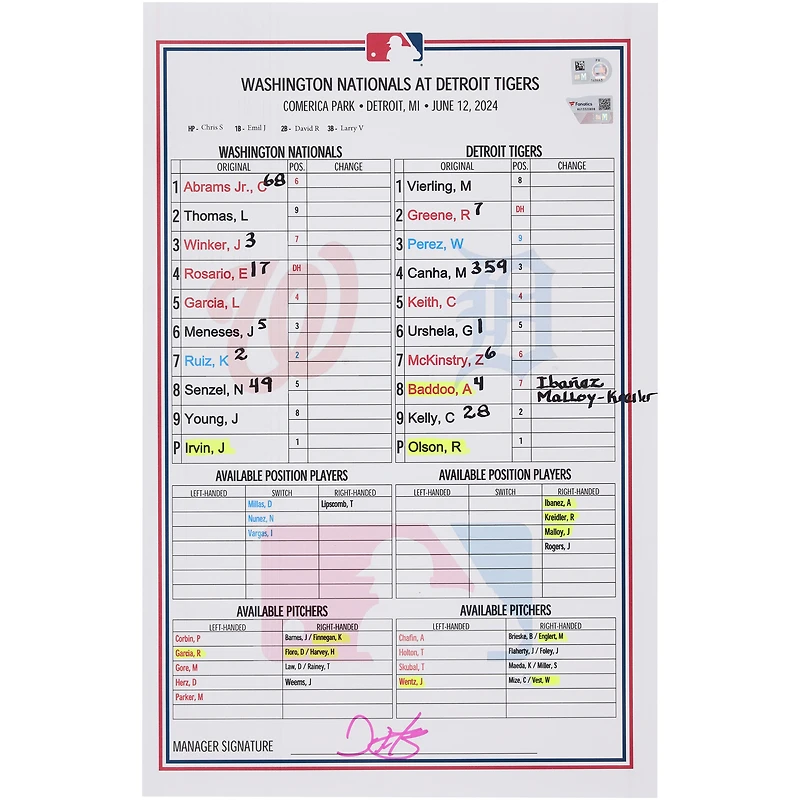 WASHINGTON NATIONALS AT DETROIT TIGERS
COMERICA PARK • DETROIT, MI • JUNE 12, 2024
HP - Chris S 1B - Emil J 2B - David R 3B - Larry V
WASHINGTON NATIONALS
ORIGINAL POS. CHANGE
1 Abrams Jr., C 68 6
2 Thomas, L 9
3 Winker, J 3 7
4 Rosario, E 17 DH
5 Garcia, L 4
6 Meneses, J 5 3
7 Ruiz, K 2 2
8 Senzel, N 49 5
9 Young, J 8
P Irvin, J 1
DETROIT TIGERS
ORIGINAL POS. CHANGE
1 Vierling, M 8
2 Greene, R 7 DH
3 Perez, W 9
4 Canha, M 359 3
5 Keith, C 4
6 Urshela, G 1 5
7 McKinstry, Z 6 6
8 Baddoo, A 4 7 Ibañez
Malloy-Kreidler
9 Kelly, C 28 2
P Olson, R 1
AVAILABLE POSITION PLAYERS
LEFT-HANDED SWITCH RIGHT-HANDED
Millas, D Lipscomb, T
Nunez, N
Vargas, I
AVAILABLE POSITION PLAYERS
LEFT-HANDED SWITCH RIGHT-HANDED
Ibanez, A
Kreidler, R
Malloy, J
Rogers, J
AVAILABLE PITCHERS
LEFT-HANDED RIGHT-HANDED
Corbin, P Barnes, J / Finnegan, K
Garcia, R Floro, D / Harvey, H
Gore, M Law, D / Rainey, T
Herz, D Weems, J
Parker, M
AVAILABLE PITCHERS
LEFT-HANDED RIGHT-HANDED
Chafin, A Brieske, B / Englert, M
Holton, T Flaherty, J / Foley, J
Skubal, T Maeda, K / Miller, S
Wentz, J Mize, C / Vest, W
MANAGER SIGNATURE
Fanatics